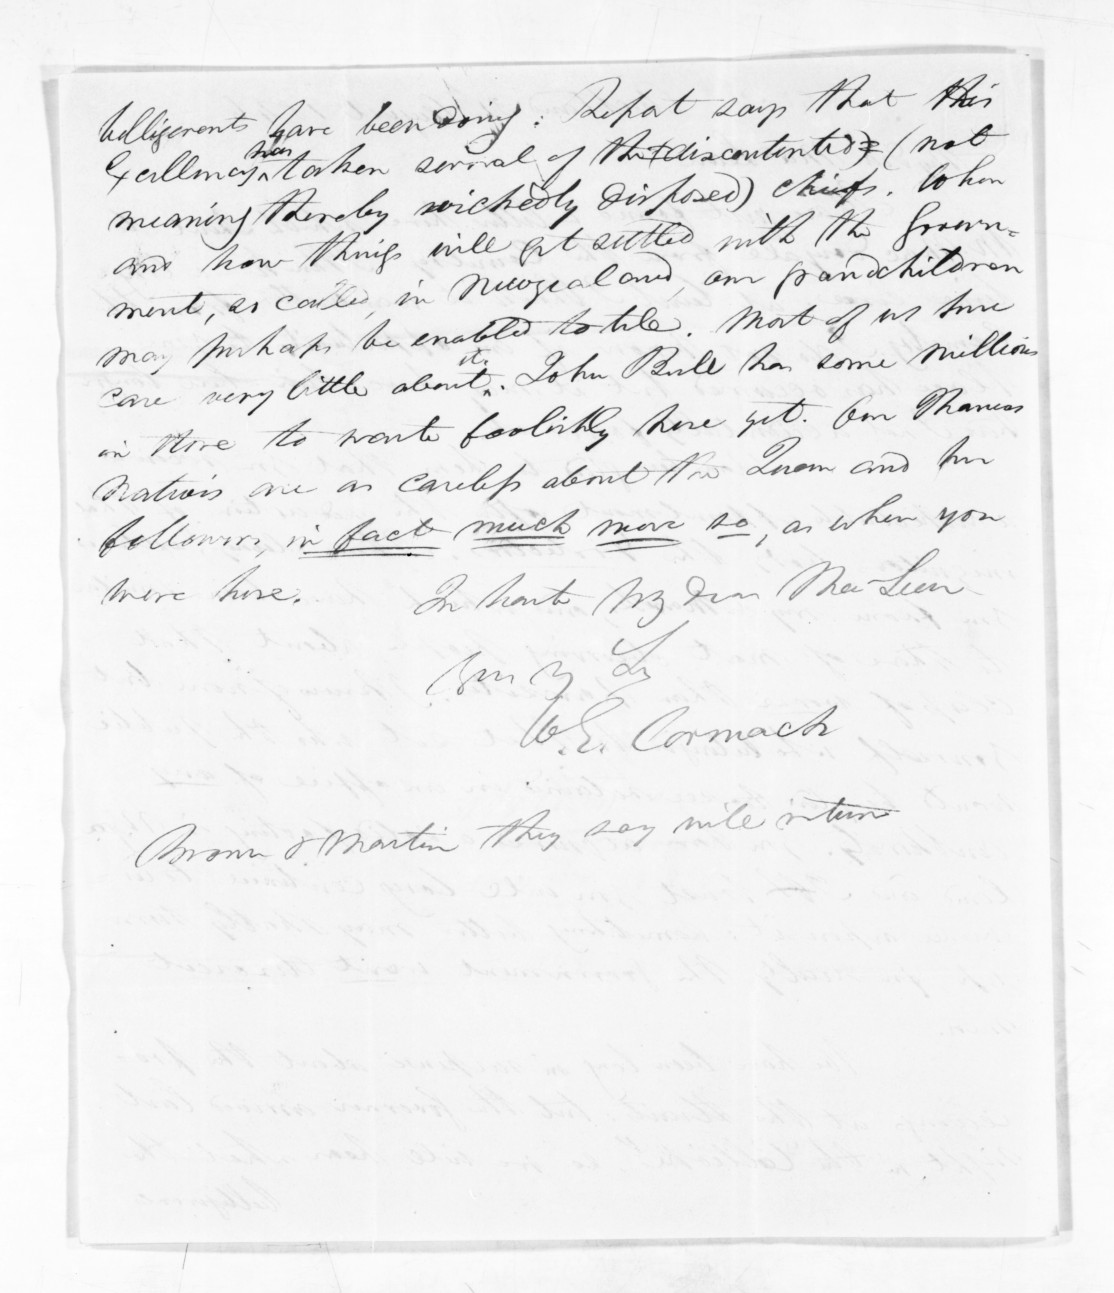 belligerents have been doing. Report says that this
Excellency has taken several of the (discontented) (not
meaning thereby wickedly disposed) chiefs. When
and how things will get settled with the Govern-
ment, as called, in Newzealand, our grandchildren
may perhaps be enabled to tell. Most of us here
care very little about it. John Bull has some millions
in store to waste foolishly here yet. Our Thames
natives are as careless about the Queen and her
followers, in fact much more so, as when you
were here. In haste My dear MacLean
Yours Truly
W.E. Cormack
Brown & Martin they say will return